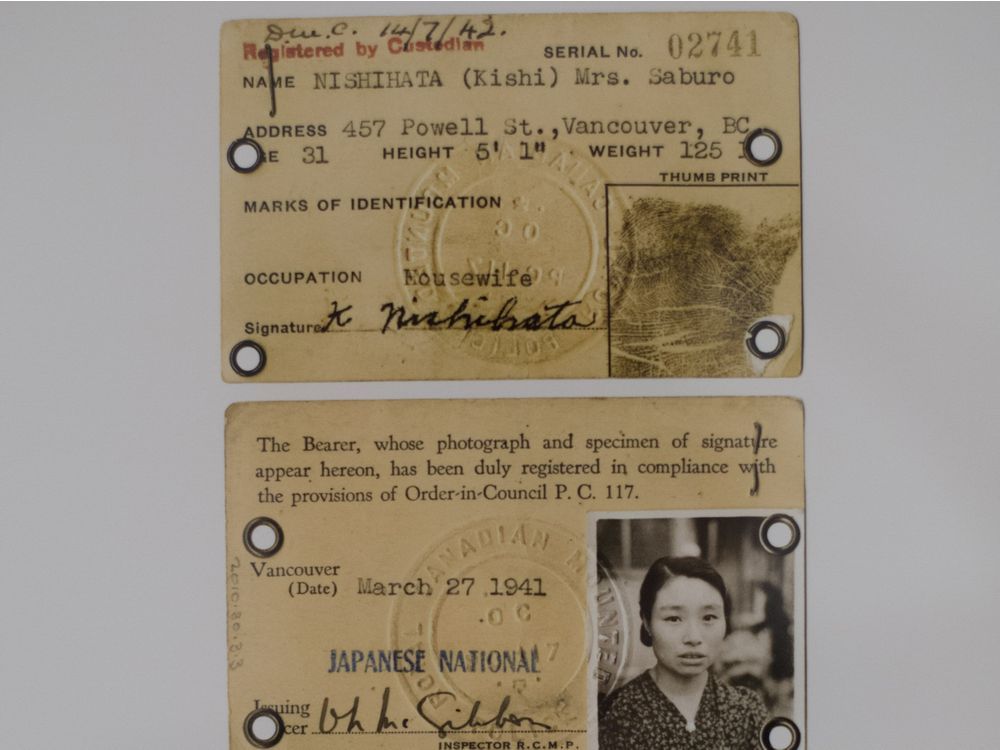 14/7/42.
Registered by Custodian
SERIAL No. 02741
NAME NISHIHATA (Kishi) Mrs. Saburo
ADDRESS 457 Powell St., Vancouver, BC.
AGE 31 HEIGHT 5' 1" WEIGHT 125
THUMB PRINT
MARKS OF IDENTIFICATION
OCCUPATION Housewife
Signature K Nishihata
The Bearer, whose photograph and specimen of signature
appear hereon, has been duly registered in compliance with
the provisions of Order-in-Council P. C. 117.
CANADIAN MOUNTED
Vancouver
(Date) March 27 1941
2010.80.2.3
JAPANESE NATIONAL
Issuing
Officer
INSPECTOR R.C.M.P.